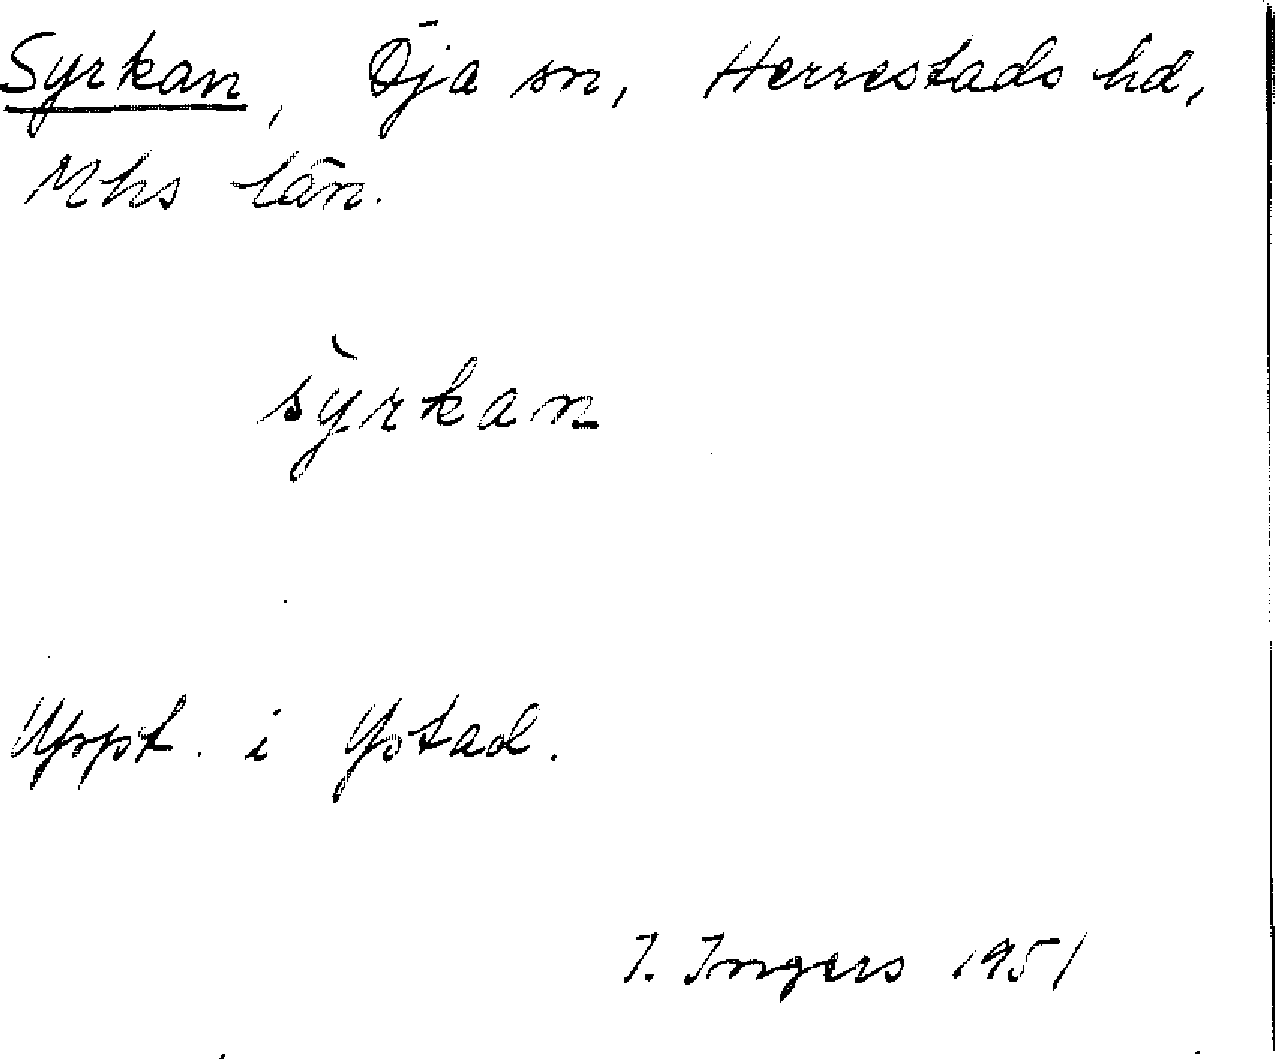 Syrkan, Öja sn, Herrestads hd,
Mhs län.
sỳrkan
Uppt. i Ystad.
I. Ingers 1951